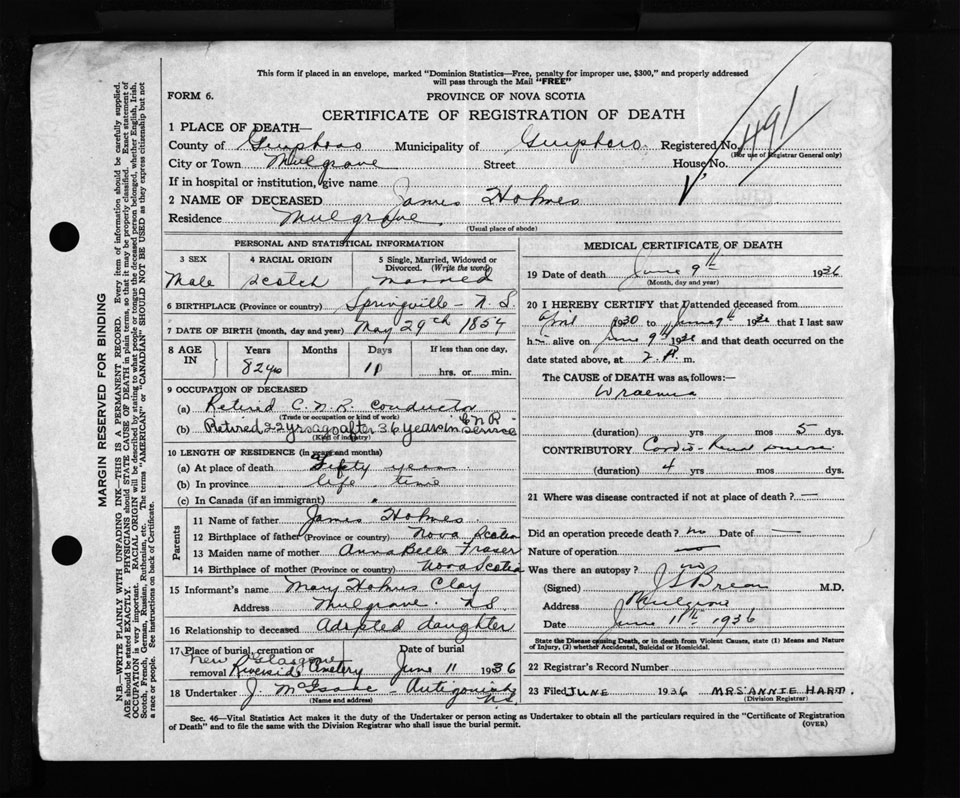 This form if placed in an envelope, marked "Dominion Statistics—Free, penalty for improper use, $300," and properly addressed
will pass through the Mail "FREE"
FORM 6.
PROVINCE OF NOVA SCOTIA
CERTIFICATE OF REGISTRATION OF DEATH
491
1 PLACE OF DEATH—
County of Municipality of Registered No.
(For use of Registrar General only)
City or Town Mulgrave Street House No.
If in hospital or institution, give name
2 NAME OF DECEASED James Holmes
Residence Mulgrave
(Usual place of abode)
PERSONAL AND STATISTICAL INFORMATION
3 SEX 4 RACIAL ORIGIN 5 Single, Married, Widowed or
Divorced. (Write the word)
Male Scotch Married
6 BIRTHPLACE (Province or country) Springville - N.S.
7 DATE OF BIRTH (month, day and year) May 29th
8 AGE IN Years Months Days If less than one day,
82 yrs 11 hrs. or min.
9 OCCUPATION OF DECEASED
(a) Retired C.N.R. conductor
(Trade or occupation or kind of work)
(b) Retired 22 yrs ago after 36 years in C.N.R. Service
(Kind of industry)
10 LENGTH OF RESIDENCE (in years and months)
(a) At place of death Fifty years
(b) In province life time
(c) In Canada (if an immigrant)
Parents
11 Name of father James Holmes
12 Birthplace of father (Province or country) Nova Scotia
13 Maiden name of mother Annabelle Fraser
14 Birthplace of mother (Province or country) Nova Scotia
15 Informant's name Mary Holmes Clay
Address Mulgrave. N.S.
16 Relationship to deceased Adopted daughter
17 Place of burial, cremation or Date of burial
New Glasgow
removal Riverside Cemetery June 11 1936
18 Undertaker J. McIsaac - Antigonish N.S.
(Name and address)
MEDICAL CERTIFICATE OF DEATH
19 Date of death June 9th 1936
(Month, day and year)
20 I HEREBY CERTIFY that I attended deceased from
April 1930 to June 9th 1936 that I last saw
him alive on June 9th 1936 and that death occurred on the
date stated above, at 2 P. m.
The CAUSE of DEATH was as follows:—
Uraemia
(duration) yrs mos 5 dys.
CONTRIBUTORY Cardio-Renal
(duration) 4 yrs mos dys.
21 Where was disease contracted if not at place of death? —
Did an operation precede death? no Date of —
Nature of operation —
Was there an autopsy? no
(Signed) M.D.
Address Mulgrave
Date June 11th 1936
State the Disease causing Death, or in death from Violent Causes, state (1) Means and Nature
of Injury, (2) whether Accidental, Suicidal or Homicidal.
22 Registrar's Record Number
23 Filed JUNE 1936 MRS ANNIE HART.
(Division Registrar)
Sec. 46—Vital Statistics Act makes it the duty of the Undertaker or person acting as Undertaker to obtain all the particulars required in the "Certificate of Registration
of Death" and to file the same with the Division Registrar who shall issue the burial permit.
(OVER)
MARGIN RESERVED FOR BINDING
N.B.—WRITE PLAINLY WITH UNFADING INK—THIS IS A PERMANENT RECORD. Every item of information should be carefully supplied.
AGE should be stated EXACTLY. PHYSICIANS should STATE CAUSE OF DEATH in plain terms, so that it may be properly classified. Exact statement of
OCCUPATION is very important. RACIAL ORIGIN will be described by stating to what people or tongue the deceased person belonged, whether English, Irish,
Scotch, French, German, Russian, Ruthenian, etc. The terms "AMERICAN" or "CANADIAN" SHOULD NOT BE USED as they express citizenship but not
a race or people. See instructions on back of Certificate.